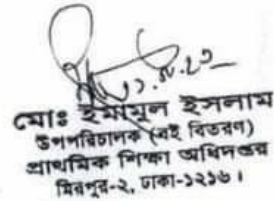 মোঃ ইমামুল ইসলাম
উপপরিচালক (বই বিতরণ)
প্রাথমিক শিক্ষা অধিদপ্তর
মিরপুর-২, ঢাকা-১২১৬।